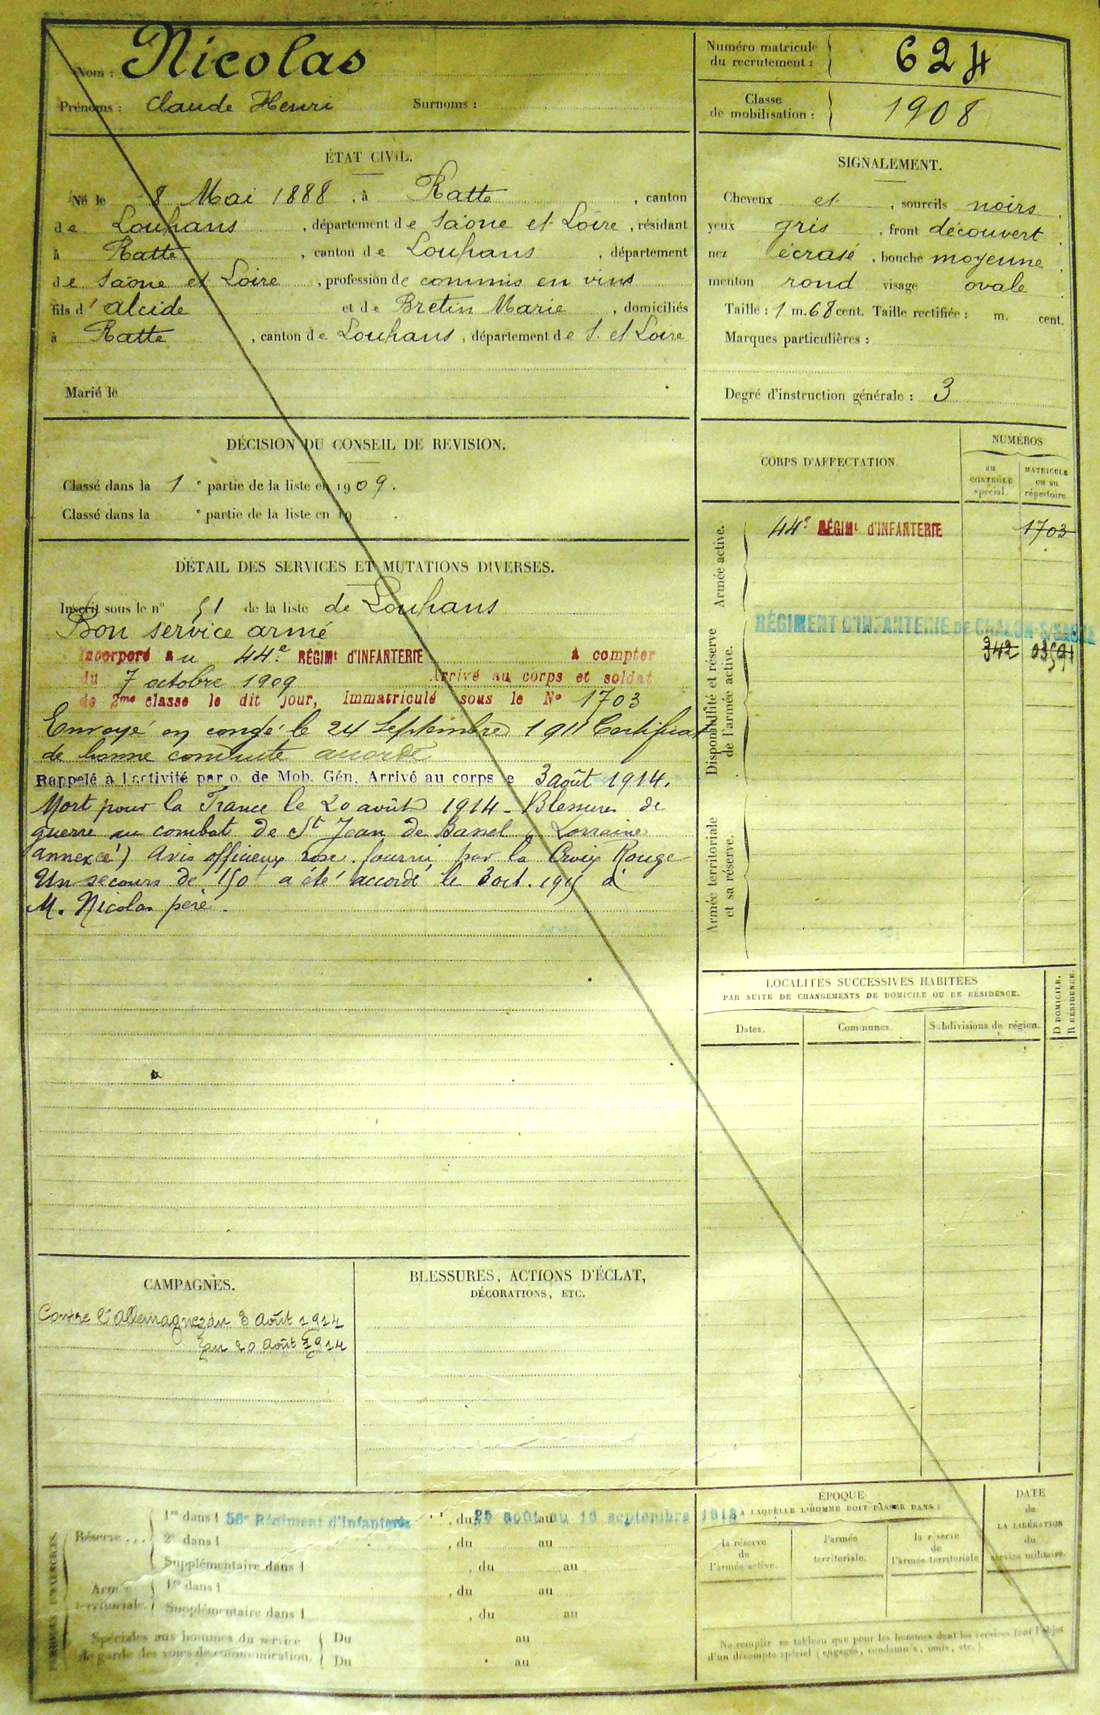 Nom : Nicolas
Prénoms : Claude Henri Surnoms :
Numéro matricule du recrutement : 624
Classe de mobilisation : 1908
ÉTAT CIVIL.
Né le 8 Mai 1888, à Ratte, canton
de Louhans, département de Saône et Loire, résidant
à Ratte, canton de Louhans, département
de Saône et Loire, profession de commis en vins
fils d'alcide et de Bretin Marie, domiciliés
à Ratte, canton de Louhans, département de S. et Loire
Marié le
SIGNALEMENT.
Cheveux et, sourcils noirs
yeux gris, front découvert
nez écrasé, bouche moyenne
menton rond visage ovale
Taille : 1 m. 68 cent. Taille rectifiée : m. cent.
Marques particulières :
Degré d'instruction générale : 3
DÉCISION DU CONSEIL DE REVISION.
Classé dans la 1e partie de la liste en 1909.
Classé dans la e partie de la liste en 19
DÉTAIL DES SERVICES ET MUTATIONS DIVERSES.
Inscrit sous le n° 51 de la liste de Louhans
Bon service armé
Incorporé au 44e RÉGIMt D'INFANTERIE à compter
du 7 octobre 1909 Arrivé au corps et soldat
de 2me classe le dit jour, Immatriculé sous le N° 1703
Envoyé en congé le 24 Septembre 1911 Certificat
de bonne conduite accordé
Rappelé à l'activité par o. de Mob. Gén. Arrivé au corps le 3 août 1914.
Mort pour la France le 20 août 1914 - Blessures de
guerre au combat de St Jean de Bassel (Lorraine
annexée) Avis officieux rose fourni par la Croix Rouge
Un secours de 150f a été accordé le 3 oct. 1915 à
M. Nicolas père.
CORPS D'AFFECTATION.
NUMÉROS
au CONTRÔLE spécial.
MATRICULE ou au répertoire.
Armée active.
44e RÉGIMt D'INFANTERIE 1703
Disponibilité et réserve de l'armée active.
RÉGIMENT D'INFANTERIE DE CHALON-S/SAÔNE
342
Armée territoriale et sa réserve.
LOCALITÉS SUCCESSIVES HABITÉES
PAR SUITE DE CHANGEMENTS DE DOMICILE OU DE RÉSIDENCE.
Dates. Communes. Subdivisions de région.
D DOMICILE. R RÉSIDENCE.
CAMPAGNES.
Contre l'Allemagne du 3 août 1914
au 20 août 1914
BLESSURES, ACTIONS D'ÉCLAT,
DÉCORATIONS, ETC.
Réserve...
1re dans l 56e Régiment d'Infanterie, du 25 août au 10 septembre 1913
2e dans l, du au
Supplémentaire dans l, du au
Armée territoriale.
1re dans l, du au
Supplémentaire dans l, du au
Spéciales aux hommes du service de garde des voies de communication.
Du au
Du au
ÉPOQUE
À LAQUELLE L'HOMME DOIT PASSER DANS :
la réserve de l'armée active.
l'armée territoriale.
la réserve de l'armée territoriale
DATE de LA LIBÉRATION du service militaire.
Ne remplir ce tableau que pour les hommes dont les services font l'objet
d'un décompte spécial (engagés, condamnés, omis, etc.).